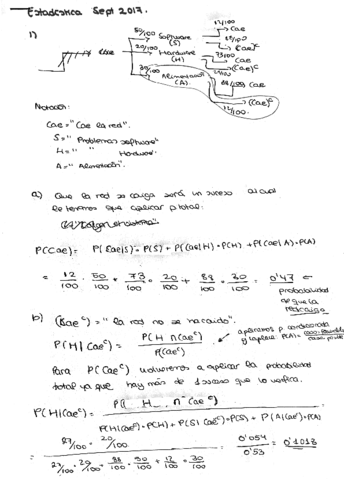 Estadística Sept 2017.
1)
50/100 Software (S) 12/100 Cae
(Cae)ᶜ
Cae 20/100 Hardware (H) 73/100 Cae
(Cae)ᶜ
30/100 Alimentación (A) 88/100 Cae
12/100 (Cae)ᶜ
Notación:
Cae = "Cae la red".
S = " Problemas software"
H = " " Hardware.
A = " Alimentación".
a) Que la red se caiga será un suceso al cual
le tenemos que aplicar p total:
P(Cae) = P(Cae|S) · P(S) + P(Cae|H) · P(H) + P(Cae|A) · P(A)
= 12/100 · 50/100 + 73/100 · 20/100 + 88/100 · 30/100 = 0'47 =
probabilidad
de que la
red caiga
b) (Caeᶜ) = " la red no se ha caido".
P(H|Caeᶜ) = P(H ∩ Caeᶜ) / P(Caeᶜ) aplicamos p condicionada
y Laplace: P(A) =
Para P(Caeᶜ) volveremos a aplicar la probabilidad
total ya que hay más de 1 suceso que lo verifica.
P(H|Caeᶜ) = P( H ∩ Caeᶜ)
P(H|Caeᶜ) · P(H) + P(S|Caeᶜ) · P(S) + P(A|Caeᶜ) · P(A)
= 27/100 · 20/100 = 0'054 = 0'1018
27/100 · 20/100 + 88/100 · 50/100 + 12/100 · 30/100 0'53